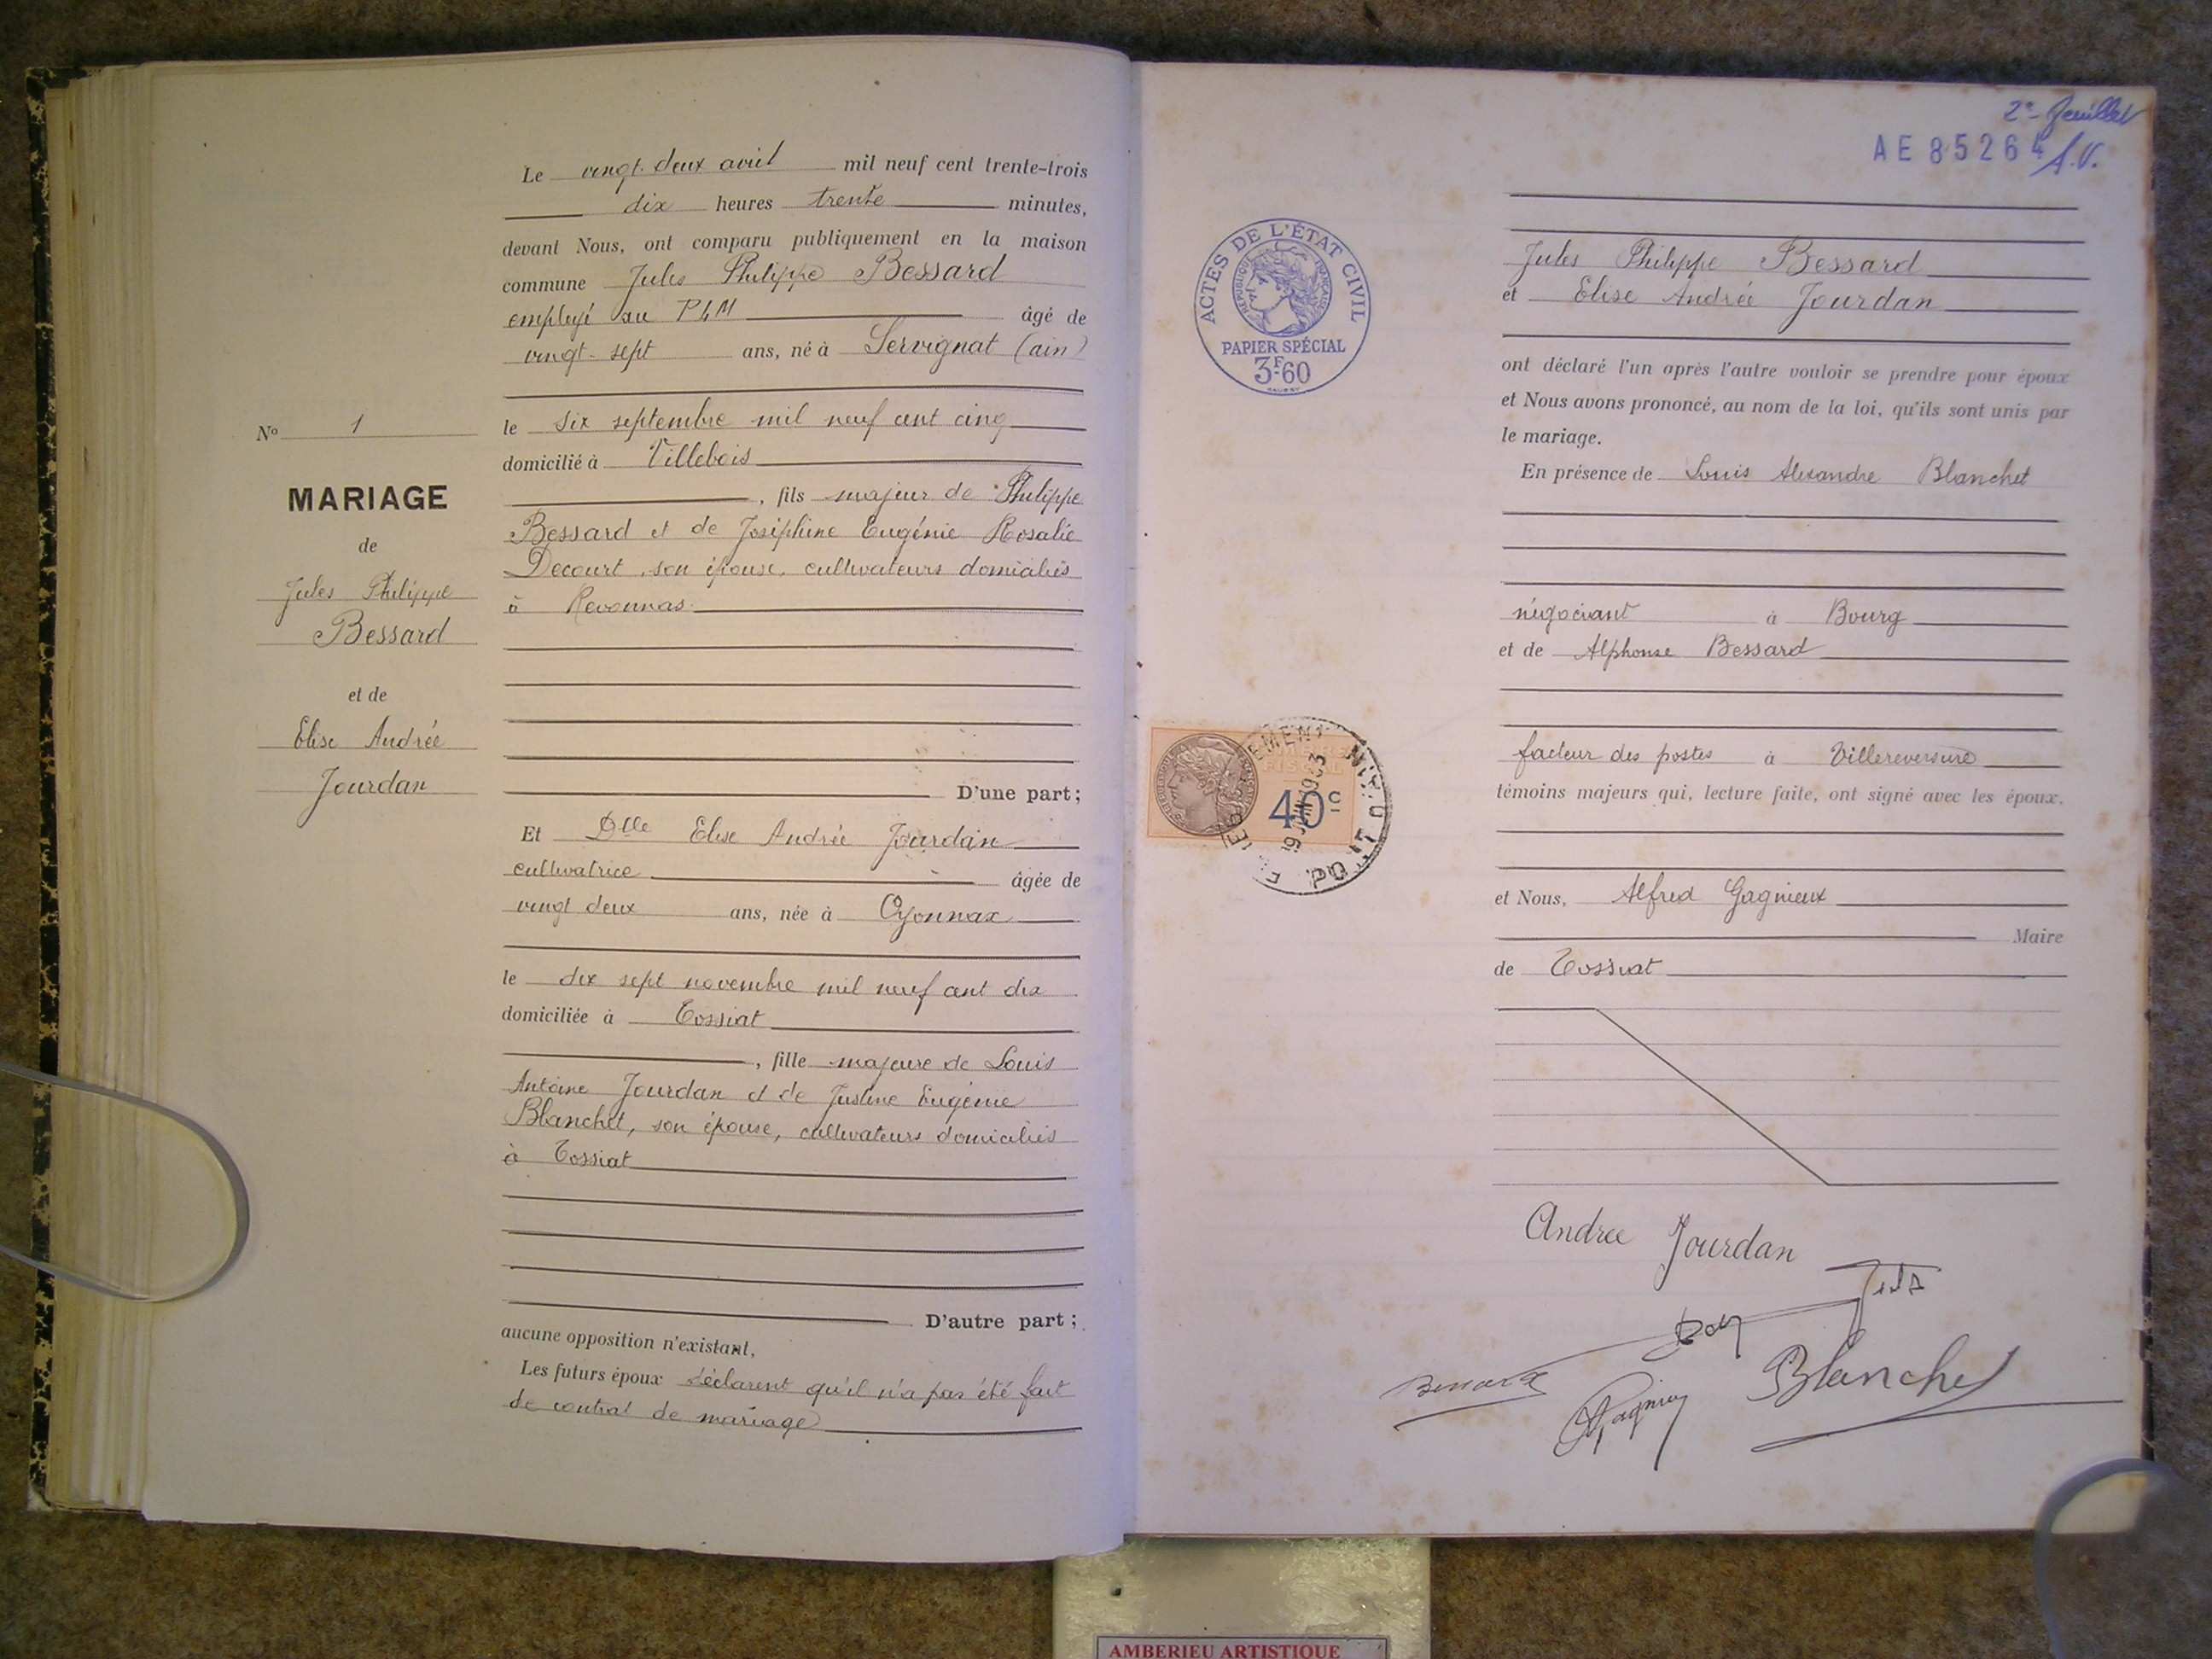 Le vingt-deux avril mil neuf cent trente-trois
dix heures trente minutes,
devant Nous, ont comparu publiquement en la maison
commune Jules Philippe Bessard
employé au PLM âgé de
vingt-sept ans, né à Servignat (ain)
le six septembre mil neuf cent cinq
domicilié à Villebois
, fils majeur de Philippe
Bessard et de Joséphine Eugénie Rosalie
Decourt, son épouse, cultivateurs domiciliés
à Revonnas
D'une part;
Et Dlle Elise Andrée Jourdan
cultivatrice âgée de
vingt deux ans, née à Oyonnax
le dix sept novembre mil neuf cent dix
domiciliée à Tossiat
, fille majeure de Louis
Antoine Jourdan et de Justine Eugénie
Blanchet, son épouse, cultivateurs domiciliés
à Tossiat
D'autre part;
aucune opposition n'existant,
Les futurs époux déclarent qu'il n'a pas été fait
de contrat de mariage
No 1
MARIAGE
de
Jules Philippe
Bessard
et de
Elise Andrée
Jourdan
2e feuillet
AE 85264 A.V.
ACTES DE L'ÉTAT CIVIL
RÉPUBLIQUE FRANÇAISE
PAPIER SPÉCIAL
3F60
Jules Philippe Bessard
et Elise Andrée Jourdan
ont déclaré l'un après l'autre vouloir se prendre pour époux
et Nous avons prononcé, au nom de la loi, qu'ils sont unis par
le mariage.
En présence de Louis Alexandre Blanchet
négociant à Bourg
et de Alphonse Bessard
facteur des postes à Villereversure
témoins majeurs qui, lecture faite, ont signé avec les époux.
et Nous, Alfred Gagnieux
Maire
de Tossiat
40c
Andree Jourdan
Bessard
Blanchet
AMBERIEU ARTISTIQUE